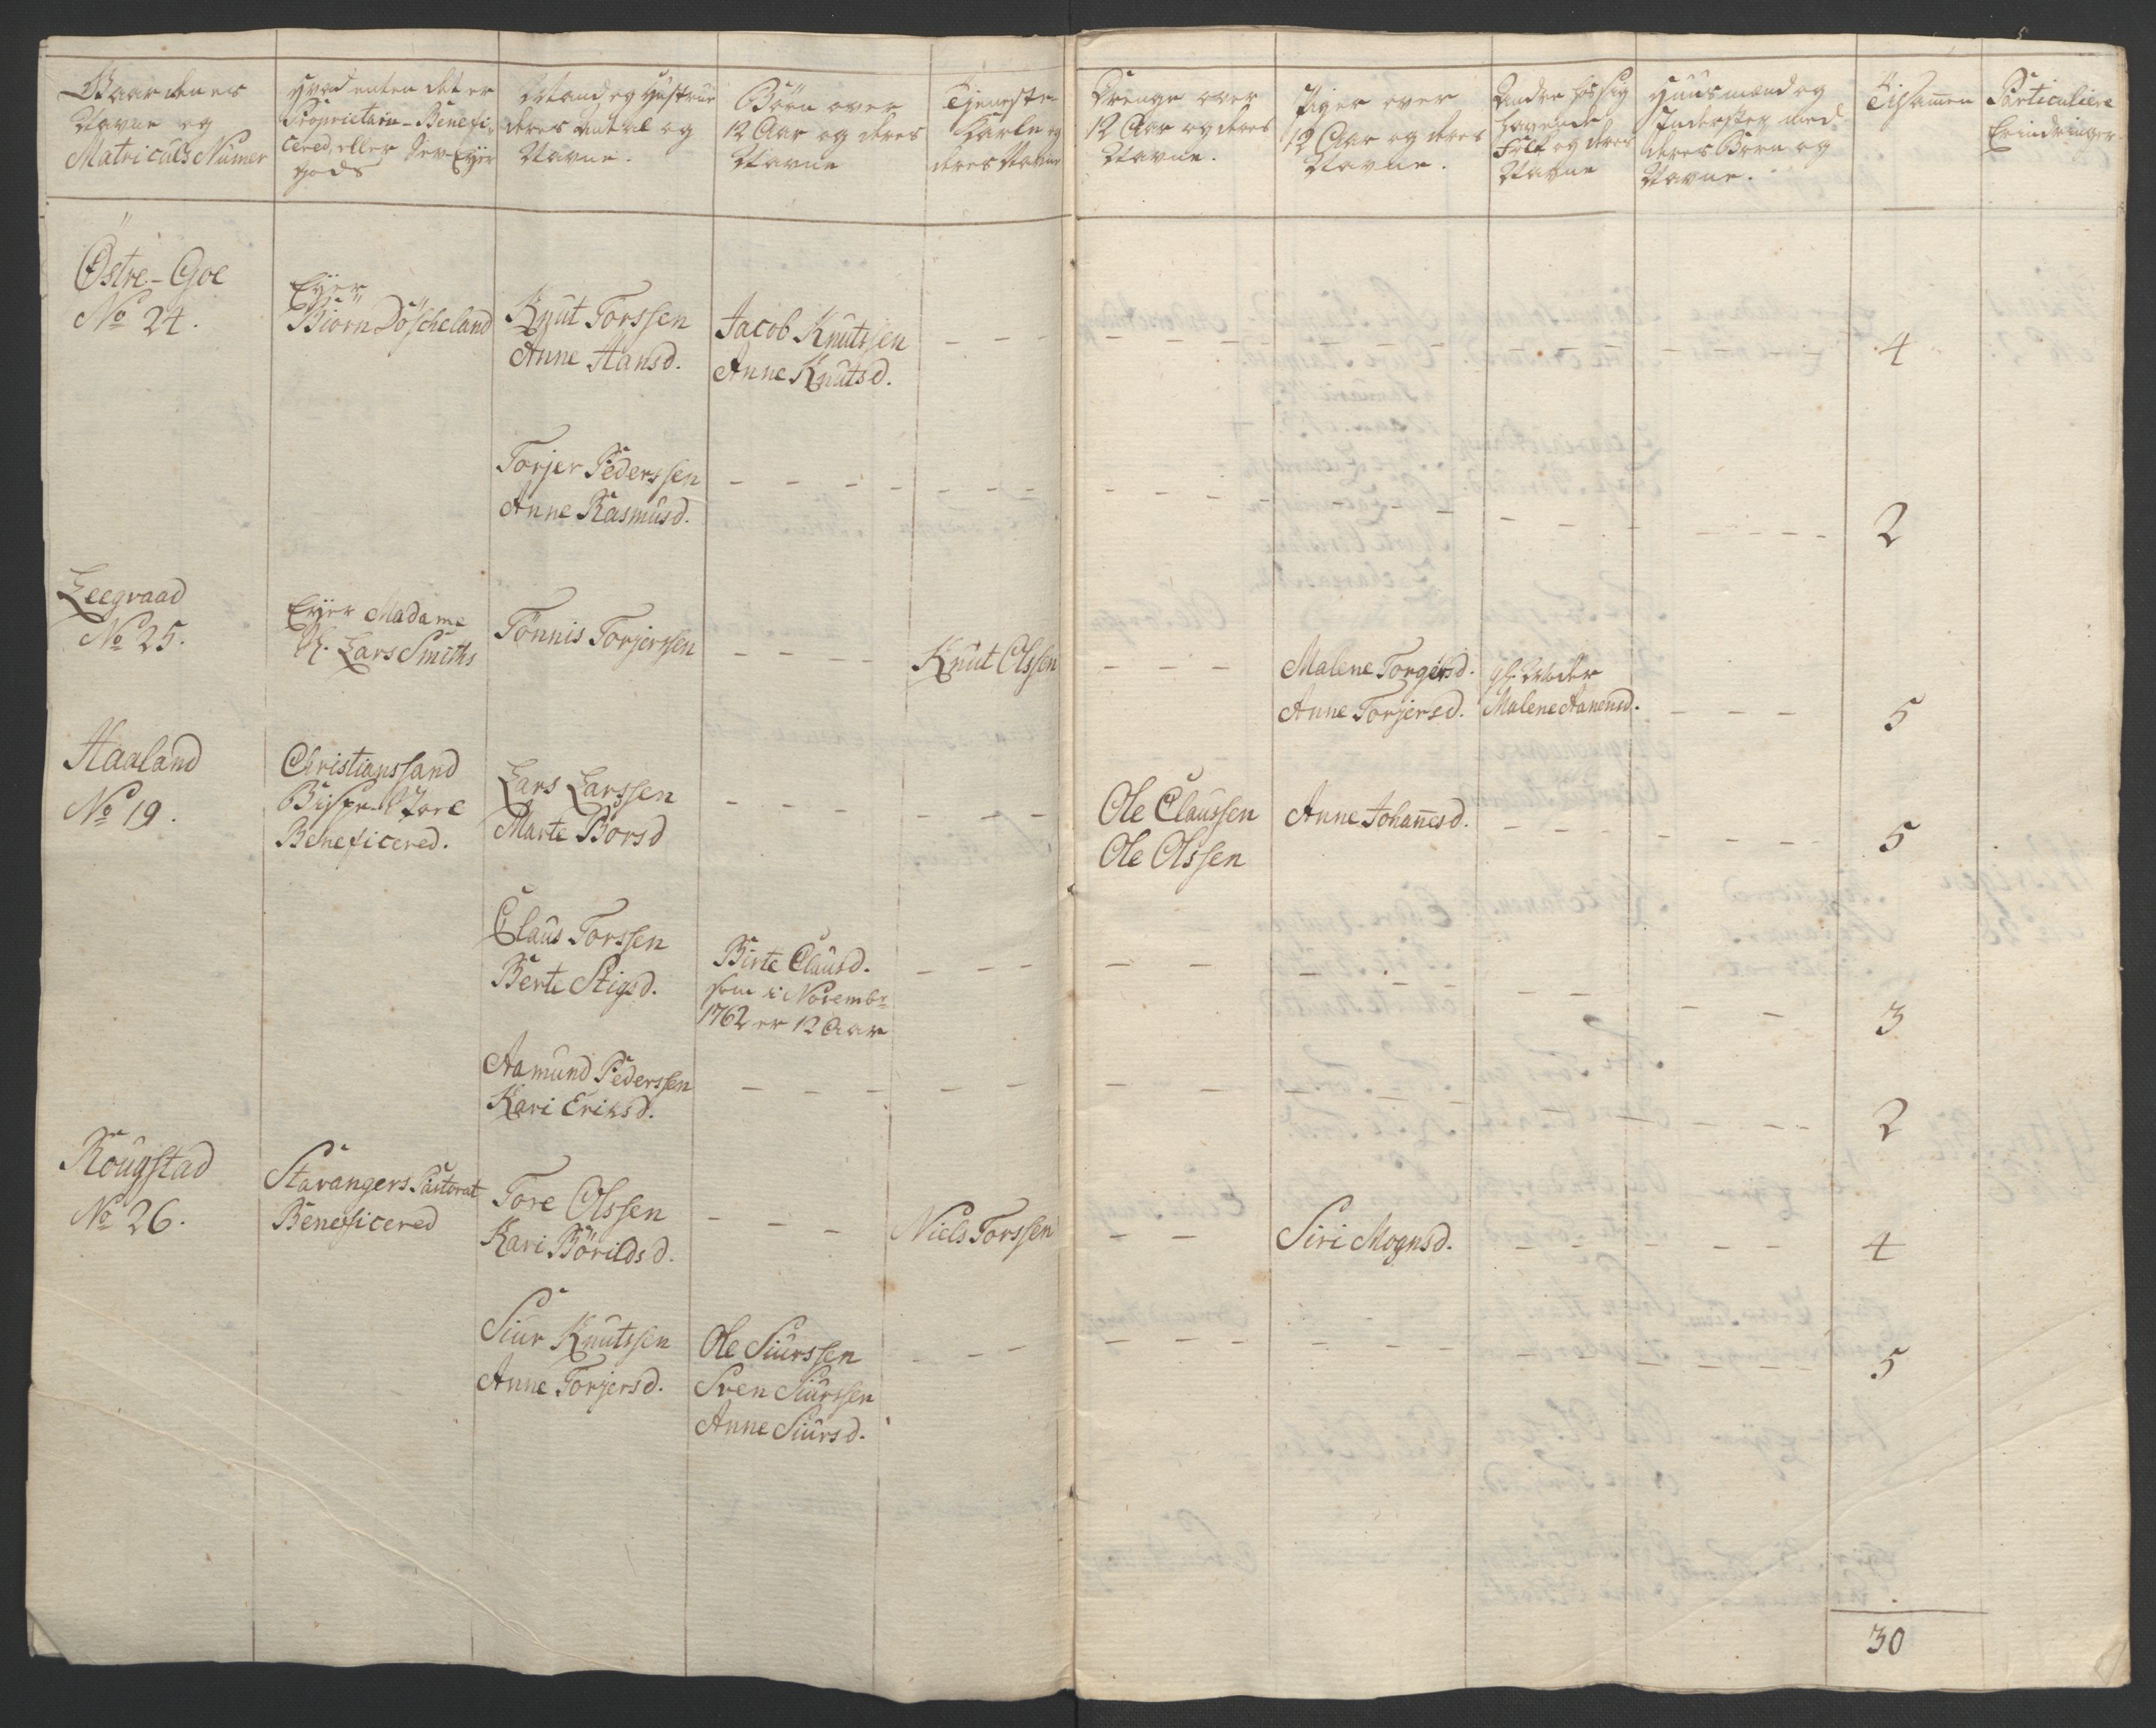 Gaardenes
Navne og
Matriculs Numer
Hvad enten det er
Proprietair-Benefi-
cered, eller Selv-Eyer
gods
Mand og Hustrue
deres Antal og
Navne.
Børn over
12 Aar og deres
Navne
Tjeneste
Karle og
deres Navne
Drenge over
12 Aar og deres
Navne.
Piger over
12 Aar og deres
Navne.
Andre hos sig
havende
Folk og deres
Navne
Huusmænd og
Inderster med
deres Børn og
Navne.
Tilsamen
Particuliere
Erindringer
Østre-Goe
No 24.
Eyer
Biörn Döscheland
Knut Torssen
Anne Hansd.
Jacob Knutssen
Anne Knutsd.
4
Torjer Pederssen
Anne Rasmusd.
2
Leegvaad
No 25.
Eyer Madame
Sl. Lars Smiths
Tönnis Torjerssen
Knut Olssen
Malene Torgersd.
Anne Torjersd.
gl. Moder
Malene Aanensd.
5
Haaland
No 19.
Christianssand
Bispe-Stoel
Beneficered.
Lars Larssen
Marte Börsd
Ole Claussen
Ole Olssen
Anne Johannesd.
5
Claus Torssen
Berte Stigsd.
Birte Clausd.
som i Novembr
1762 er 12 Aar
3
Aamund Pederssen
Kari Eriksd.
2
Rougstad
No 26.
Stavangers Pastorat
Beneficered
Tore Olssen
Kari Börildsd.
Niels Torssen
Siri Mognsd.
4
Siur Knutssen
Anne Torjersd.
Ole Siurssen
Sven Siurssen
Anne Siursd.
5
30